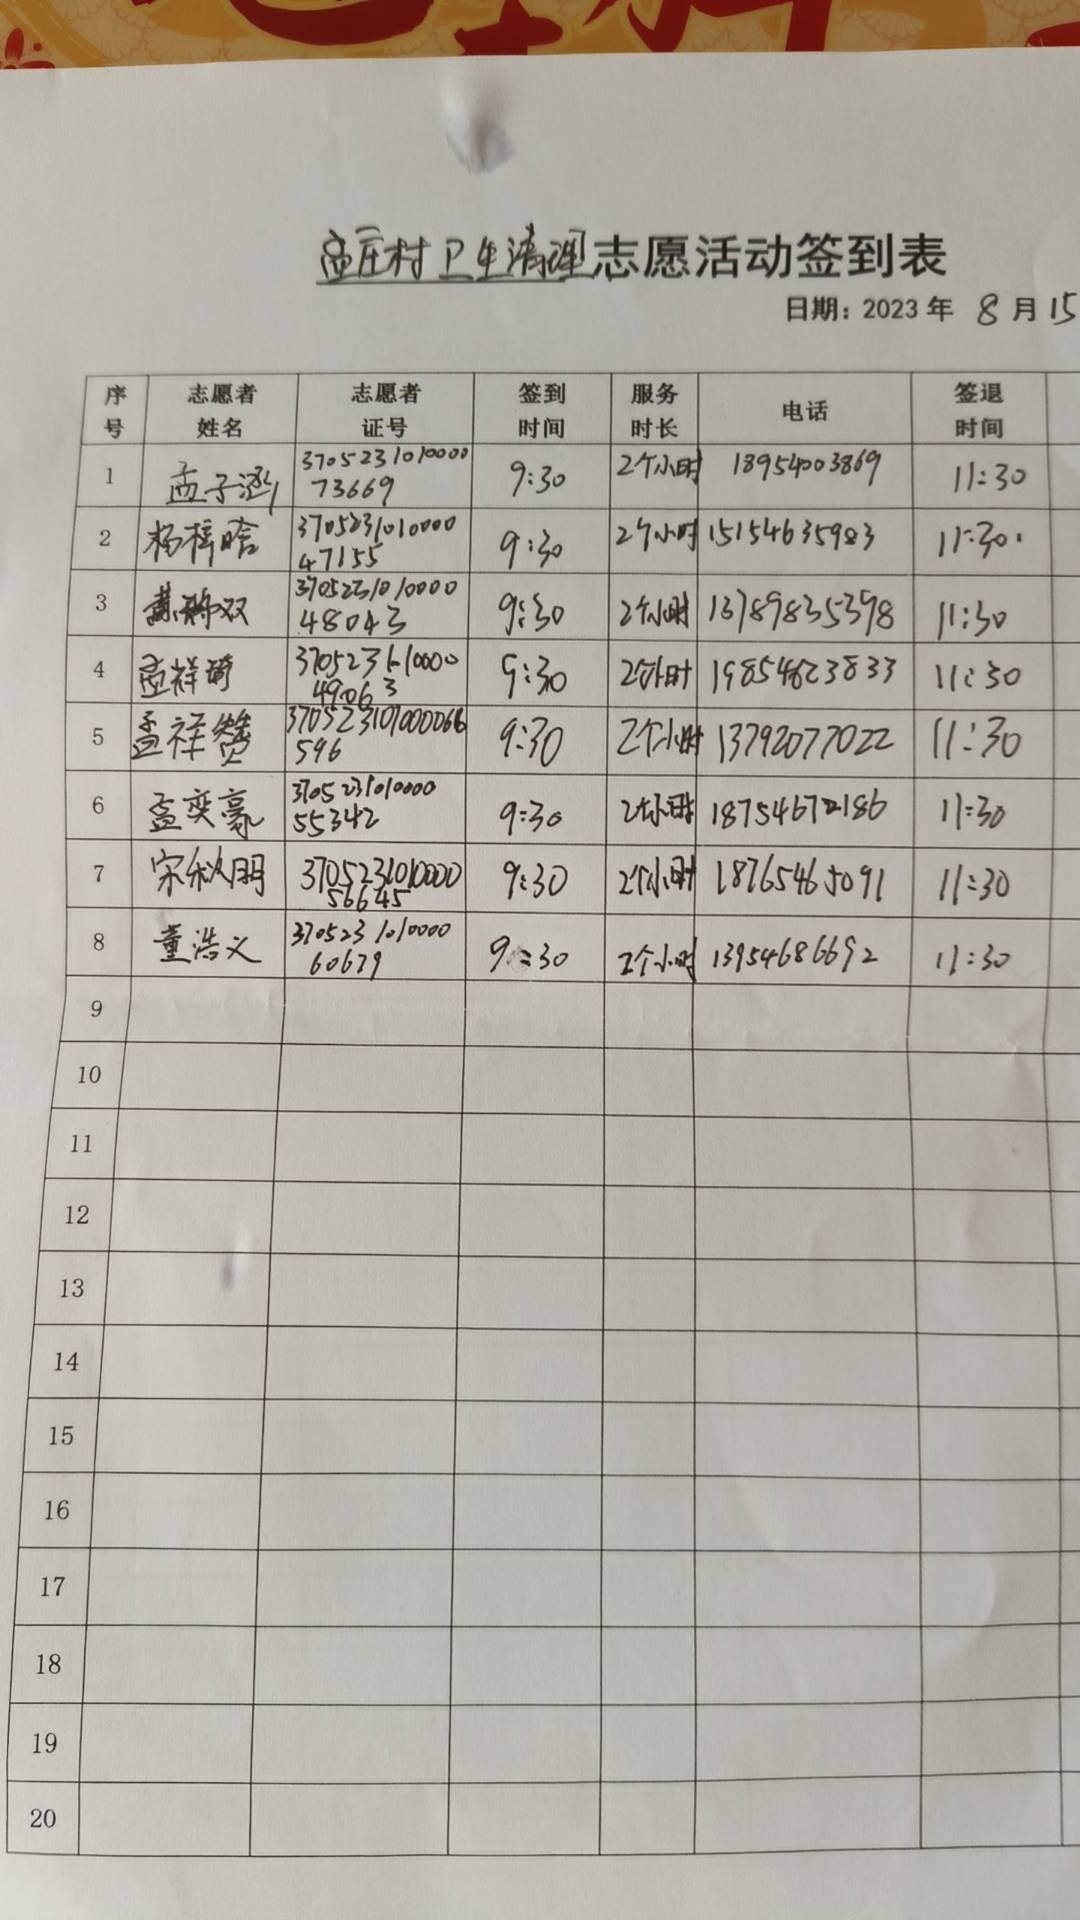 孟庄村卫生清理志愿活动签到表
日期：2023 年 8 月 15
序号 志愿者姓名 志愿者证号 签到时间 服务时长 电话 签退时间
1 孟子涵 370523101000073669 9:30 2个小时 18954003869 11:30
2 杨梓晗 370523101000047155 9:30 2个小时 15154635983 11:30
3 双 370523101000048043 9:30 2个小时 13789835398 11:30
4 孟祥琦 49063 9:30 2个小时 19854823833 11:30
5 孟祥赞 370523101000066596 9:30 2个小时 13792077022 11:30
6 孟奕豪 370523101000055342 9:30 2个小时 11:30
7 宋秋明 370523101000056645 9:30 2个小时 18765465091 11:30
8 董浩义 370523101000060679 9:30 2个小时 13954686692 11:30
9
10
11
12
13
14
15
16
17
18
19
20